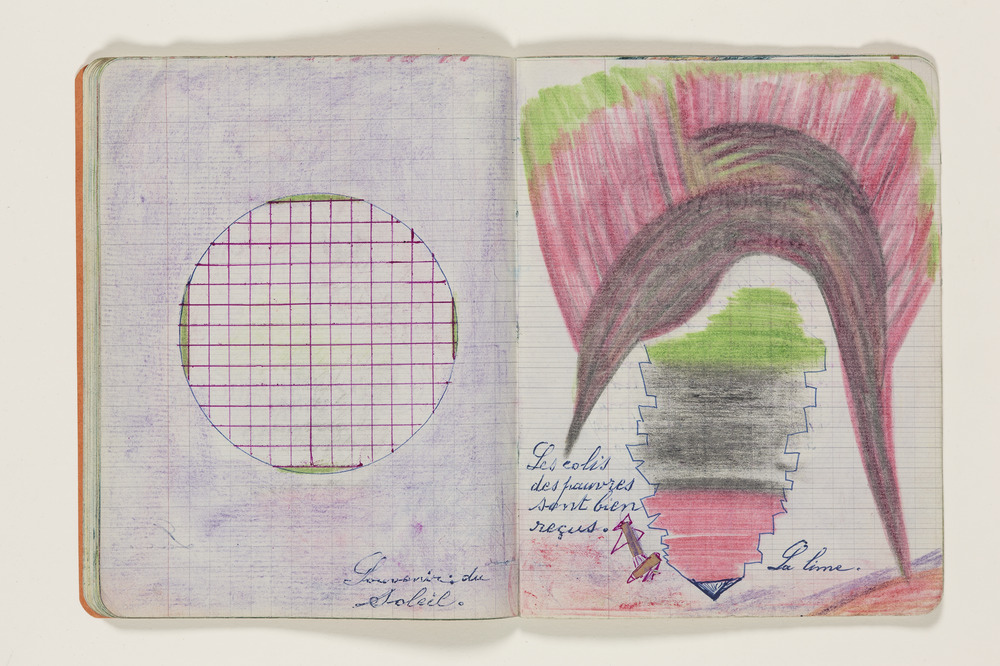 Souvenir : du
Soleil.
Les colis
des pauvres
sont bien
reçus.
La lime.